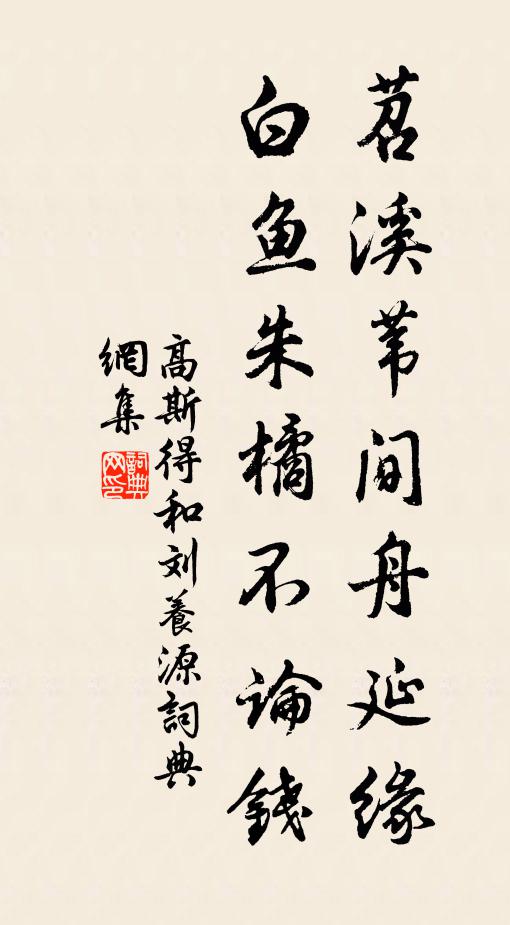 苕溪苇间舟延缘
白鱼朱橘不论錢
高斯得和刘養源詞典
網集
詞典网印